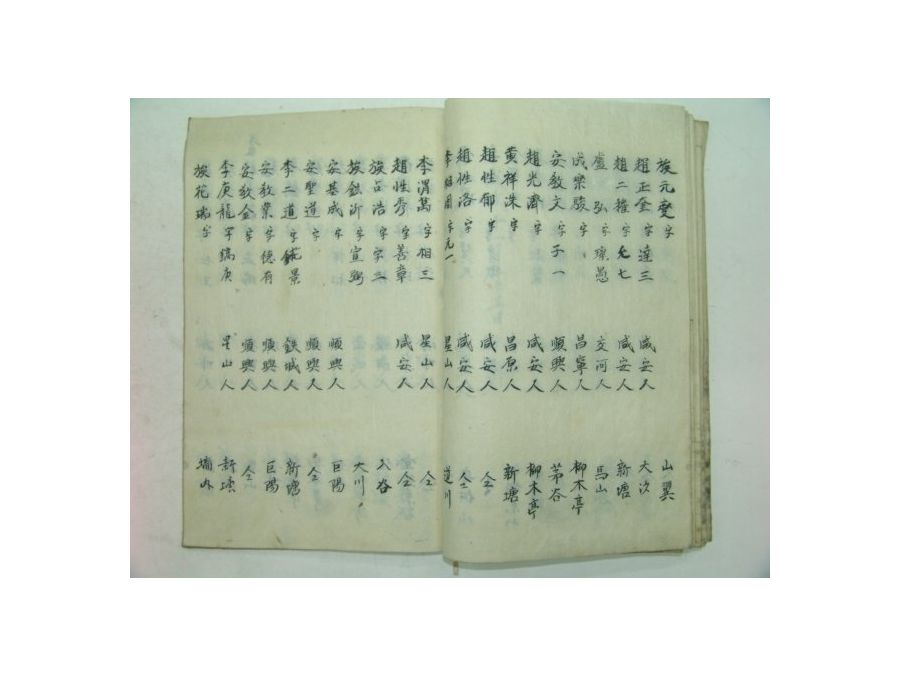 族元燮 字 山翼
趙正奎 字達三 咸安人 大汶
趙二權 字允七 咸安人 新塘
盧 弘 字 愚 交河人 馬山
成樂駿 字 昌寧人 柳木亭
安敎文 字子一 順興人 茅谷
趙光濟 字 咸安人 柳木亭
黃祥洙 字 昌原人 新塘
趙性郁 字 咸安人 仝
趙性洛 字 咸安人 仝
李 字元一 星山人 道川
李渭萬 字相三 星山人 仝
趙性秀 字善章 咸安人 仝
族呂浩 字字二 入谷
族鉉沂 字宣弼 大川
安基成 字 順興人 巨陽
安聖道 字 順興人 仝
李二道 字 景 鉄城人 新塘
安敎業 字德有 順興人 巨陽
安敎金 字 順興人 仝
李庚龍 字鎬庚 星山人 新
族花瑞 字 墻外